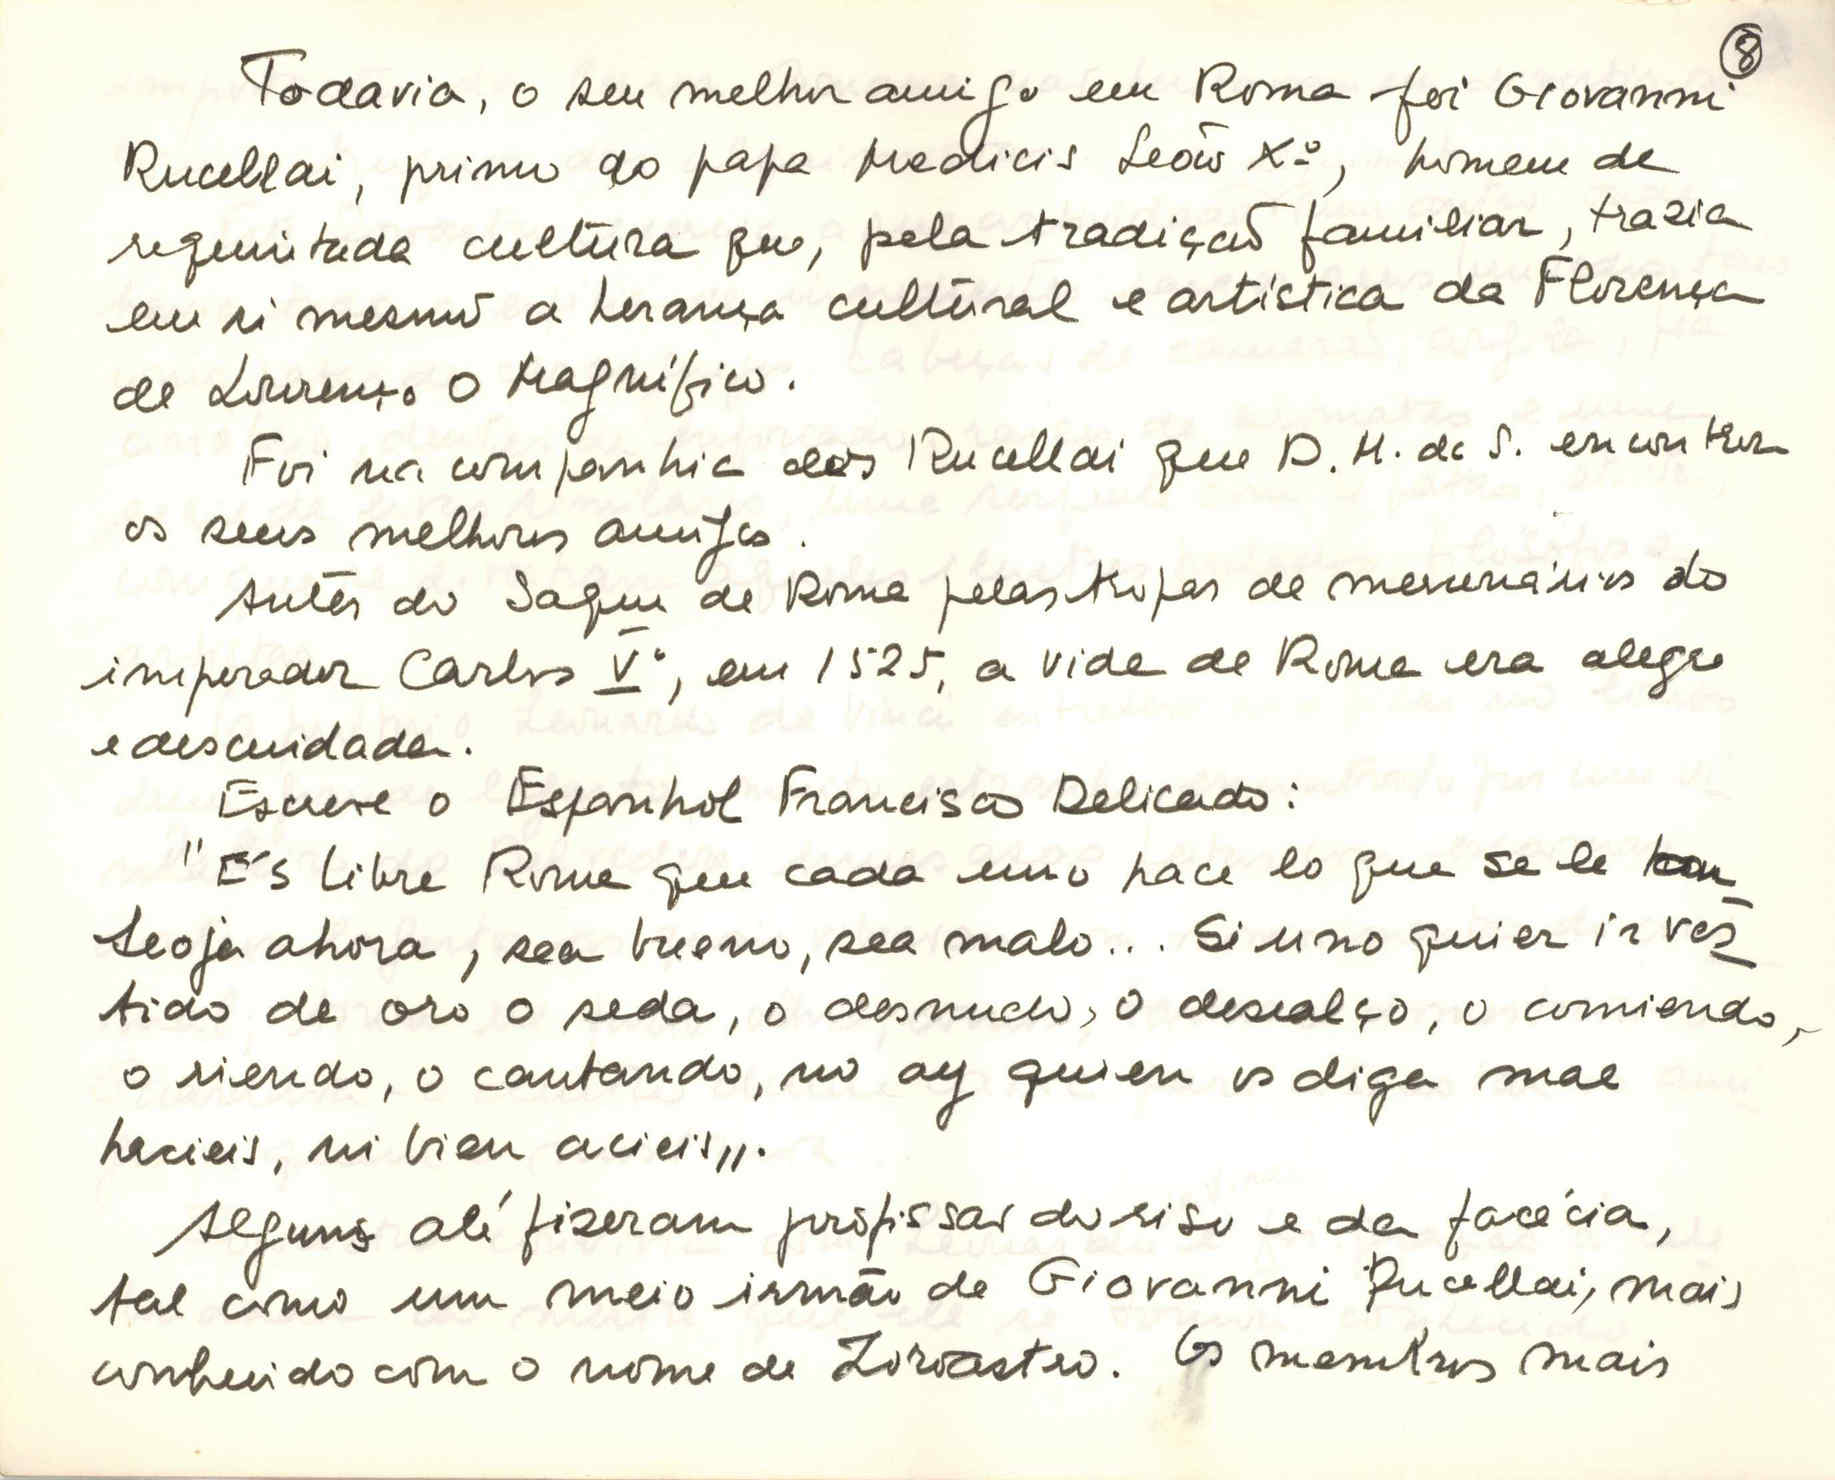 8
Todavia, o seu melhor amigo em Roma foi Giovanni
Rucellai, primo do papa Medicis Leão Xº, homem de
requintada cultura que, pela tradição familiar, trazia
em si mesmo a herança cultural e artística da Florença
de Lourenço O Magnífico.
Foi na companhia dos Rucellai que D. M. da S. encontrou
os seus melhores amigos.
Antes do Saque de Roma pelas tropas de mercenários do
imperador Carlos Vº, em 1525, a vida de Roma era alegre
e descuidada.
Escreve o Espanhol Francisco Delicado:
"És libre Roma que cada uno hace lo que se le
teoja ahora, sea bueno, sea malo... Si uno quier ir ves-
tido de oro o seda, o desnudo, o descalço, o comiendo,
o riendo, o cantando, no ay quien os diga mal
hacieis, ni bien acieis".
Alguns até fizeram profissão do riso e da facécia,
tal como um meio irmão de Giovanni Rucellai, mais
conhecido com o nome de Zoroastro. Os membros mais